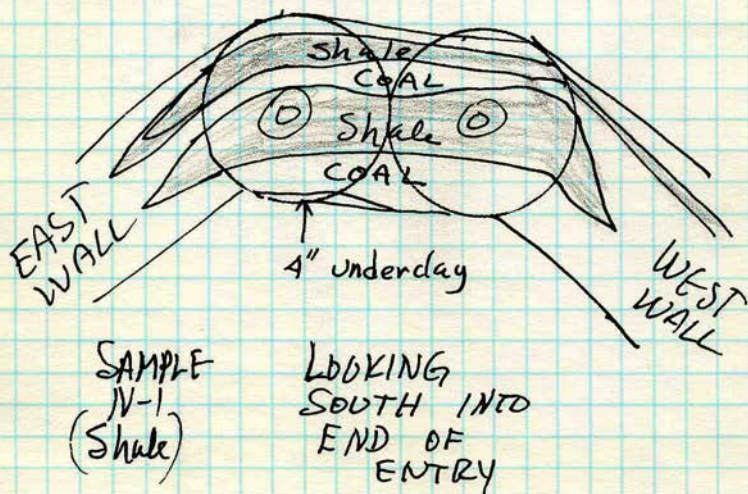 Shale
COAL
Shale
COAL
EAST
WALL
4" underclay
WEST
WALL
SAMPLE
IV-1
(Shale)
LOOKING
SOUTH INTO
END OF
ENTRY